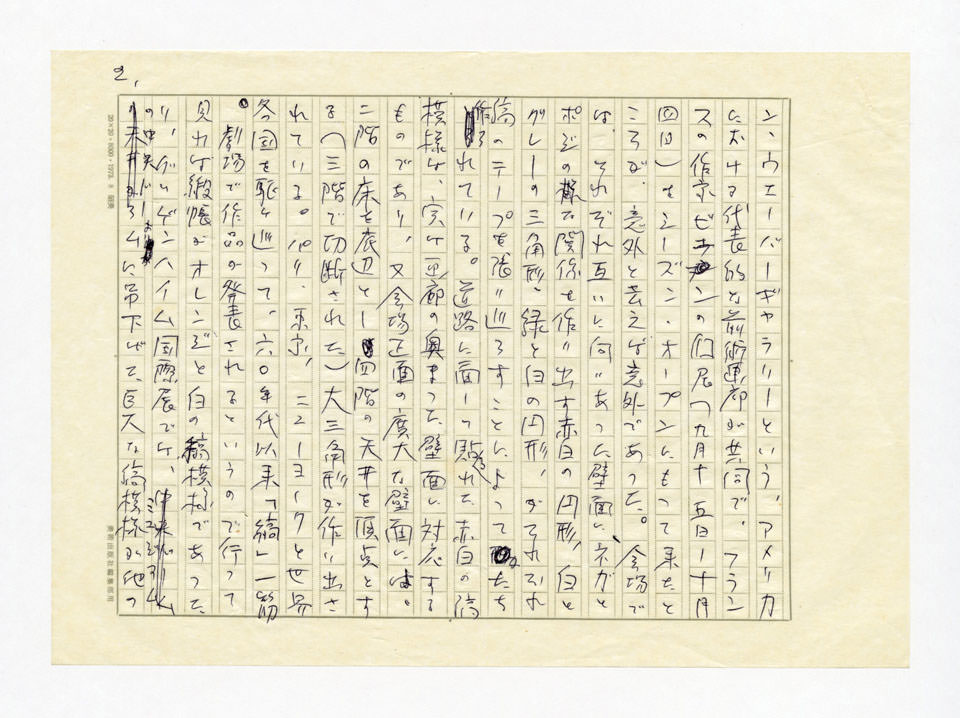 2,
ン、ウエーバーギャラリーという、アメリカ
における代表的な前術画廊が共同で、フラン
スの作家ビュランの個展(九月十五日ー十月
四日)をシーズン・オープンにもって来たと
ころが、意外と云えば意外であった。会場で
は、それぞれ互いに向いあった壁面に、ネガと
ポジの様な関係を作い出す赤白の円形、白と
グレーの三角形、緑と白の円形、がそれぞれ
縞のテープを張い巡ろすことによってたち
作られている。道路に面して貼られた赤白の縞
模様は、実は画廊の奥まった壁面に対応する
ものであり、又会場正面の広大な壁面には、
二階の床を底辺とし四階の天井を頂点とす
る(三階で切断された)大三角形が作い出さ
れている。パリ、東京、ニューヨークと世界
各国を駆け巡って、六〇年代以来「縞」一筋
。劇場で作品が発表されるというので行って
見れば緞帳がオレンジと白の縞模様であった
り、グッゲンハイム国際展では、
の中央ドームに吊下げた巨大な縞模様が他の
20×20・8000・1973.